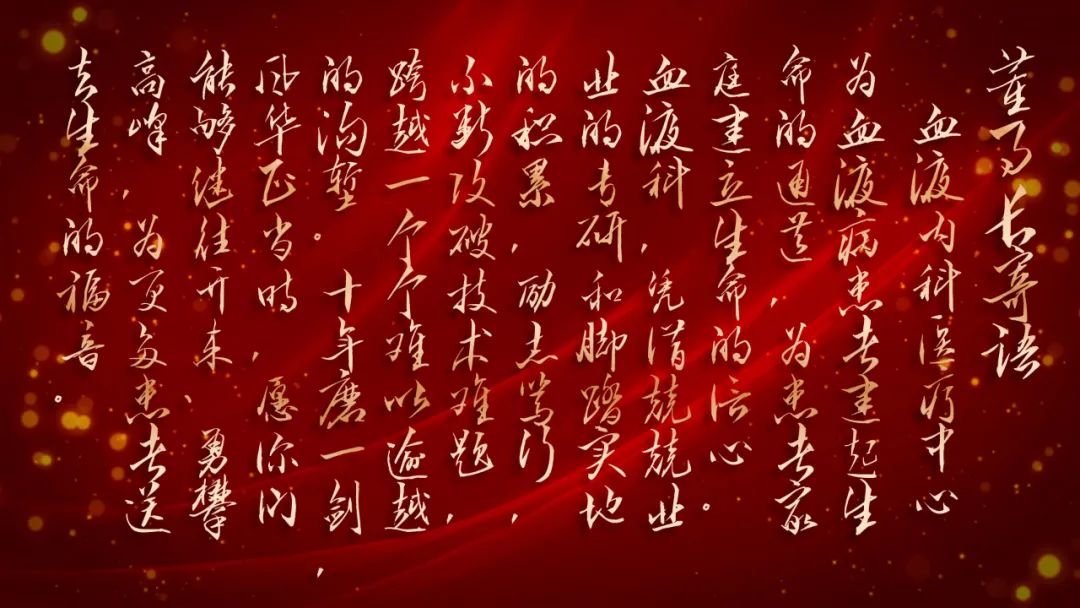 董事长寄语
血液内科医疗中心
为血液病患者建起生
命的通道，为患者家
庭建立生命的信心。
血液科，凭借兢兢业
业的专研和脚踏实地
的积累，励志笃行，
不断攻破技术难题，
跨越一个个难以逾越
的沟堑。十年磨一剑，
风华正当时，愿你们
能够继往开来、勇攀
高峰，为更多患者送
去生命的福音。